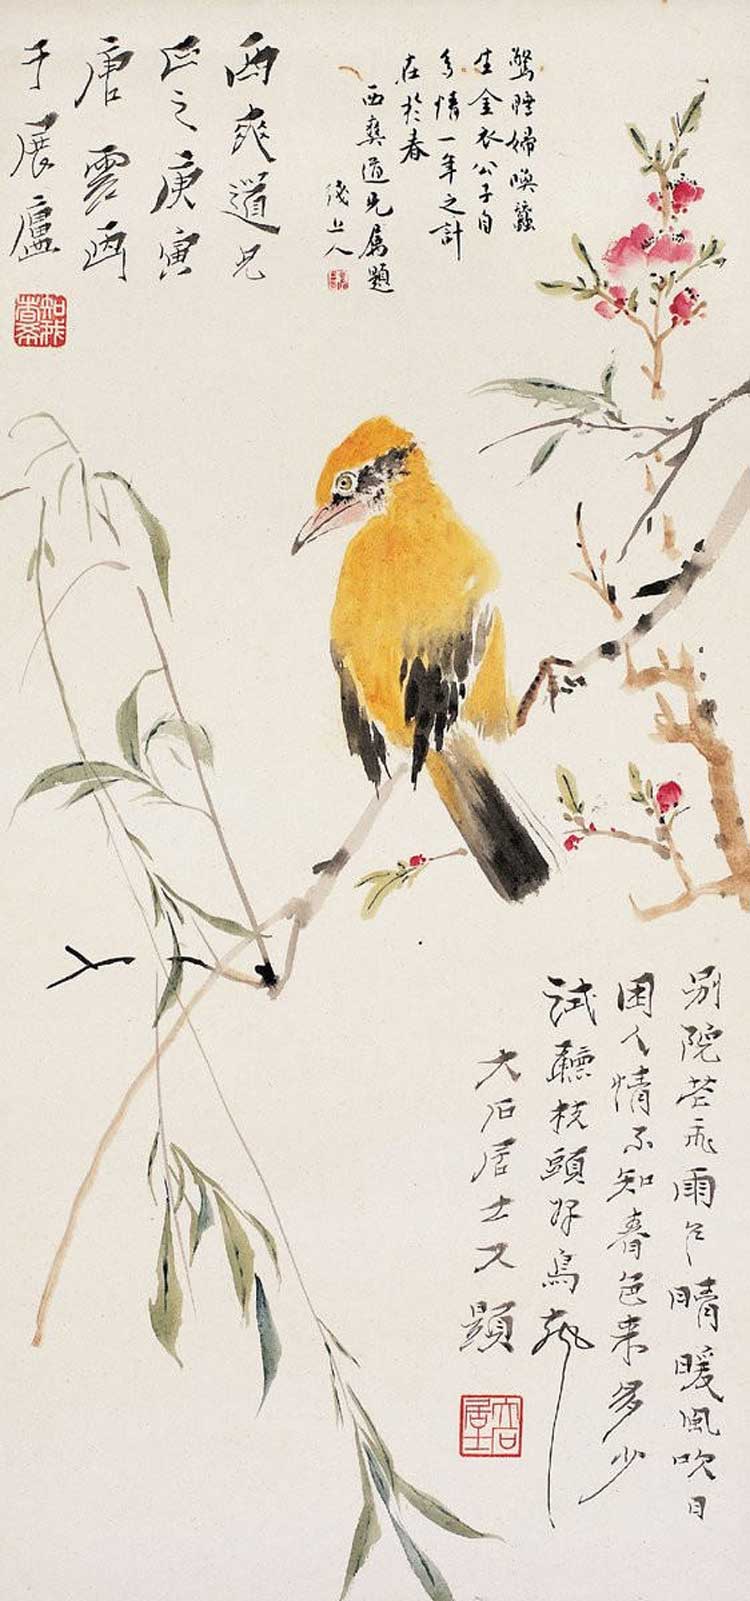 鶯婦喚蠶
生金衣公子自
多情一年之計
在於春
西爽道兄属題
上人
西爽道兄
正之庚寅
唐雲画
于展廬
别院花飛雨乍晴暖風吹日
困人情不知春色来多少
試聽枝頭好鳥聲
大石居士又題
大石居士